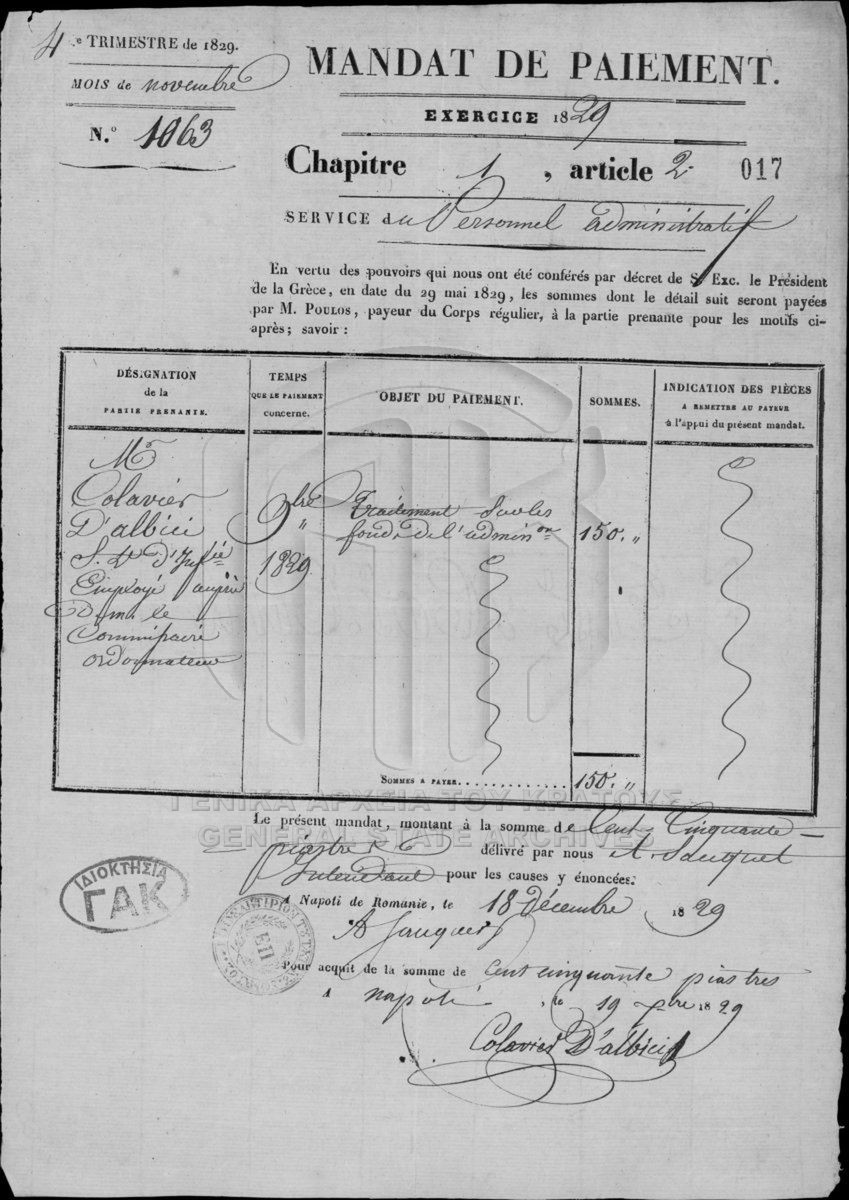 4e TRIMESTRE de 1829.
MOIS de novembre
N.° 1063
MANDAT DE PAIEMENT.
EXERCICE 1829
Chapitre 1, article 2 017
SERVICE du Personnel administratif
En vertu des pouvoirs qui nous ont été conférés par décret de S. Exc. le Président
de la Grèce, en date du 29 mai 1829, les sommes dont le détail suit seront payées
par M. POULOS, payeur du Corps régulier, à la partie prenante pour les motifs ci-
après; savoir :
DÉSIGNATION
de la
PARTIE PRENANTE.
TEMPS
QUE LE PAIEMENT
concerne.
OBJET DU PAIEMENT.
SOMMES.
INDICATION DES PIÈCES
A REMETTRE AU PAYEUR
à l'appui du présent mandat.
Mr
Colavier
D'albici
S. Lt D'Infie
Employé auprès
de m. le
Commissaire
ordonnateur
9bre
"
1829
Traitement sur les
fonds de l'adminon
150. "
SOMMES A PAYER............
150. "
ΓΕΝΙΚΑ ΑΡΧΕΙΑ ΤΟΥ ΚΡΑΤΟΥΣ
GENERAL STATE ARCHIVES
Le présent mandat, montant à la somme de Cent Cinquante
piastres délivré par nous A. Sauquet
Intendant pour les causes y énoncées.
A Napoli de Romanie, le 18 décembre 1829
A Sauquet
Pour acquit de la somme de cent cinquante piastres
A napoli le 19 xbre 1829
Colavier D'albici
ΙΔΙΟΚΤΗΣΙΑ
ΓΑΚ